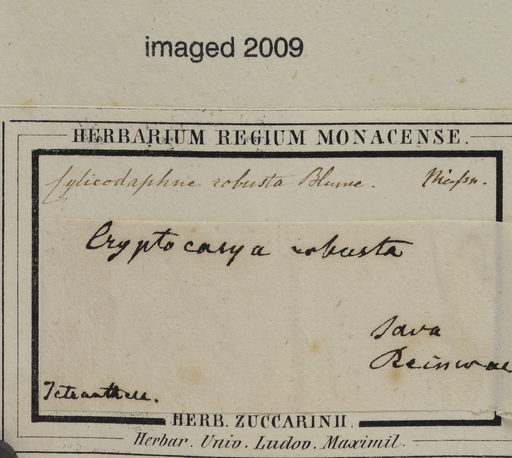 imaged 2009
HERBARIUM REGIUM MONACENSE.
Cylicodaphne robusta Blume. Meissn.
Cryptocarya robusta
Java
Reinwar
Tetranthera.
HERB. ZUCCARINII.
Herbar. Univ. Ludov. Maximil.